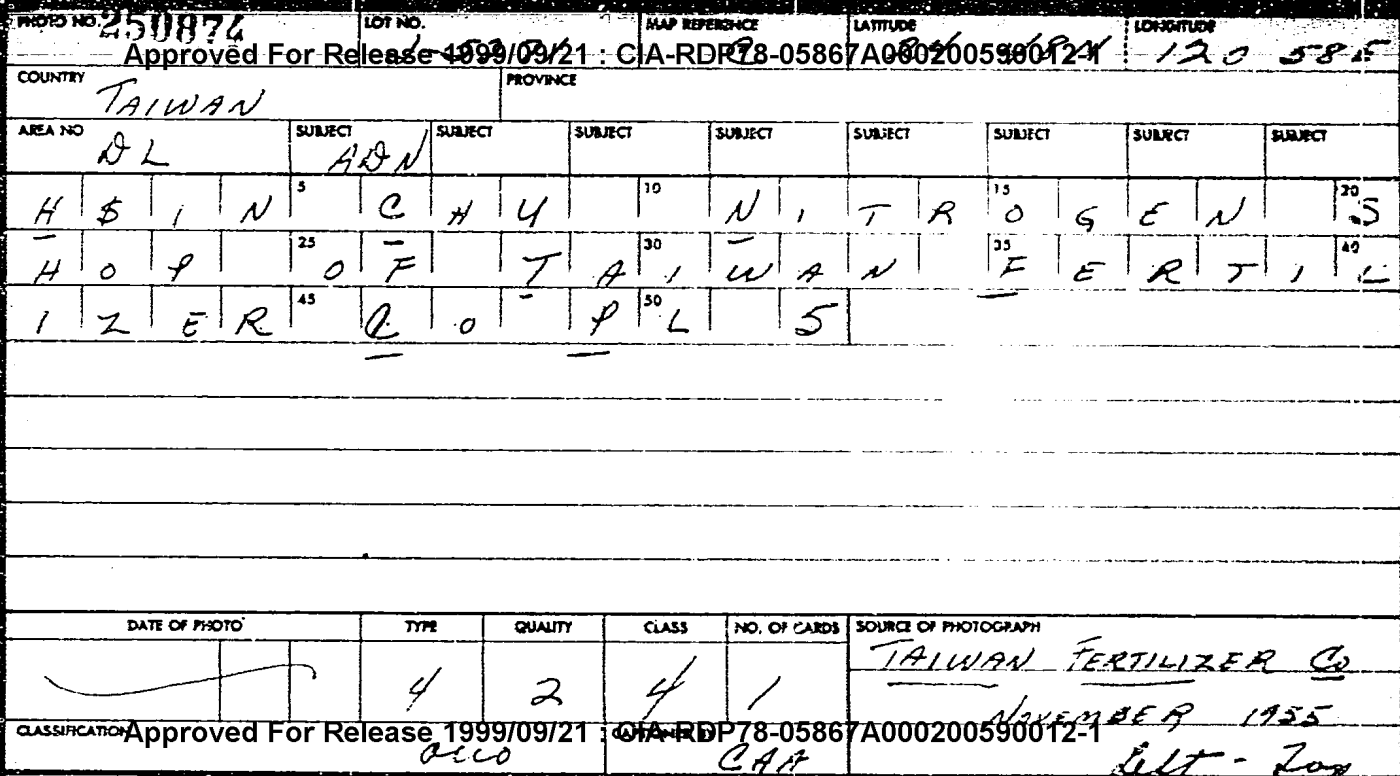 PHOTO NO. 250874 LOT NO. MAP REFERENCE LATITUDE LONGITUDE
Approved For Release 1999/09/21 : CIA-RDP78-05867A000200590012-1 120 58 E
COUNTRY TAIWAN PROVINCE
AREA NO DL SUBJECT ADN SUBJECT SUBJECT SUBJECT SUBJECT SUBJECT SUBJECT SUBJECT
5 10 15 20
H$IN CHU NITROGEN S
25 30 35 40
HOP OF TAIWAN FERTIL
45 50
IZER CO PL 5
DATE OF PHOTO TYPE QUALITY CLASS NO. OF CARDS SOURCE OF PHOTOGRAPH
TAIWAN FERTILIZER Co
4 2 4 1
NOVEMBER 1955
CLASSIFICATION Approved For Release 1999/09/21 : CIA-RDP78-05867A000200590012-1
CAA